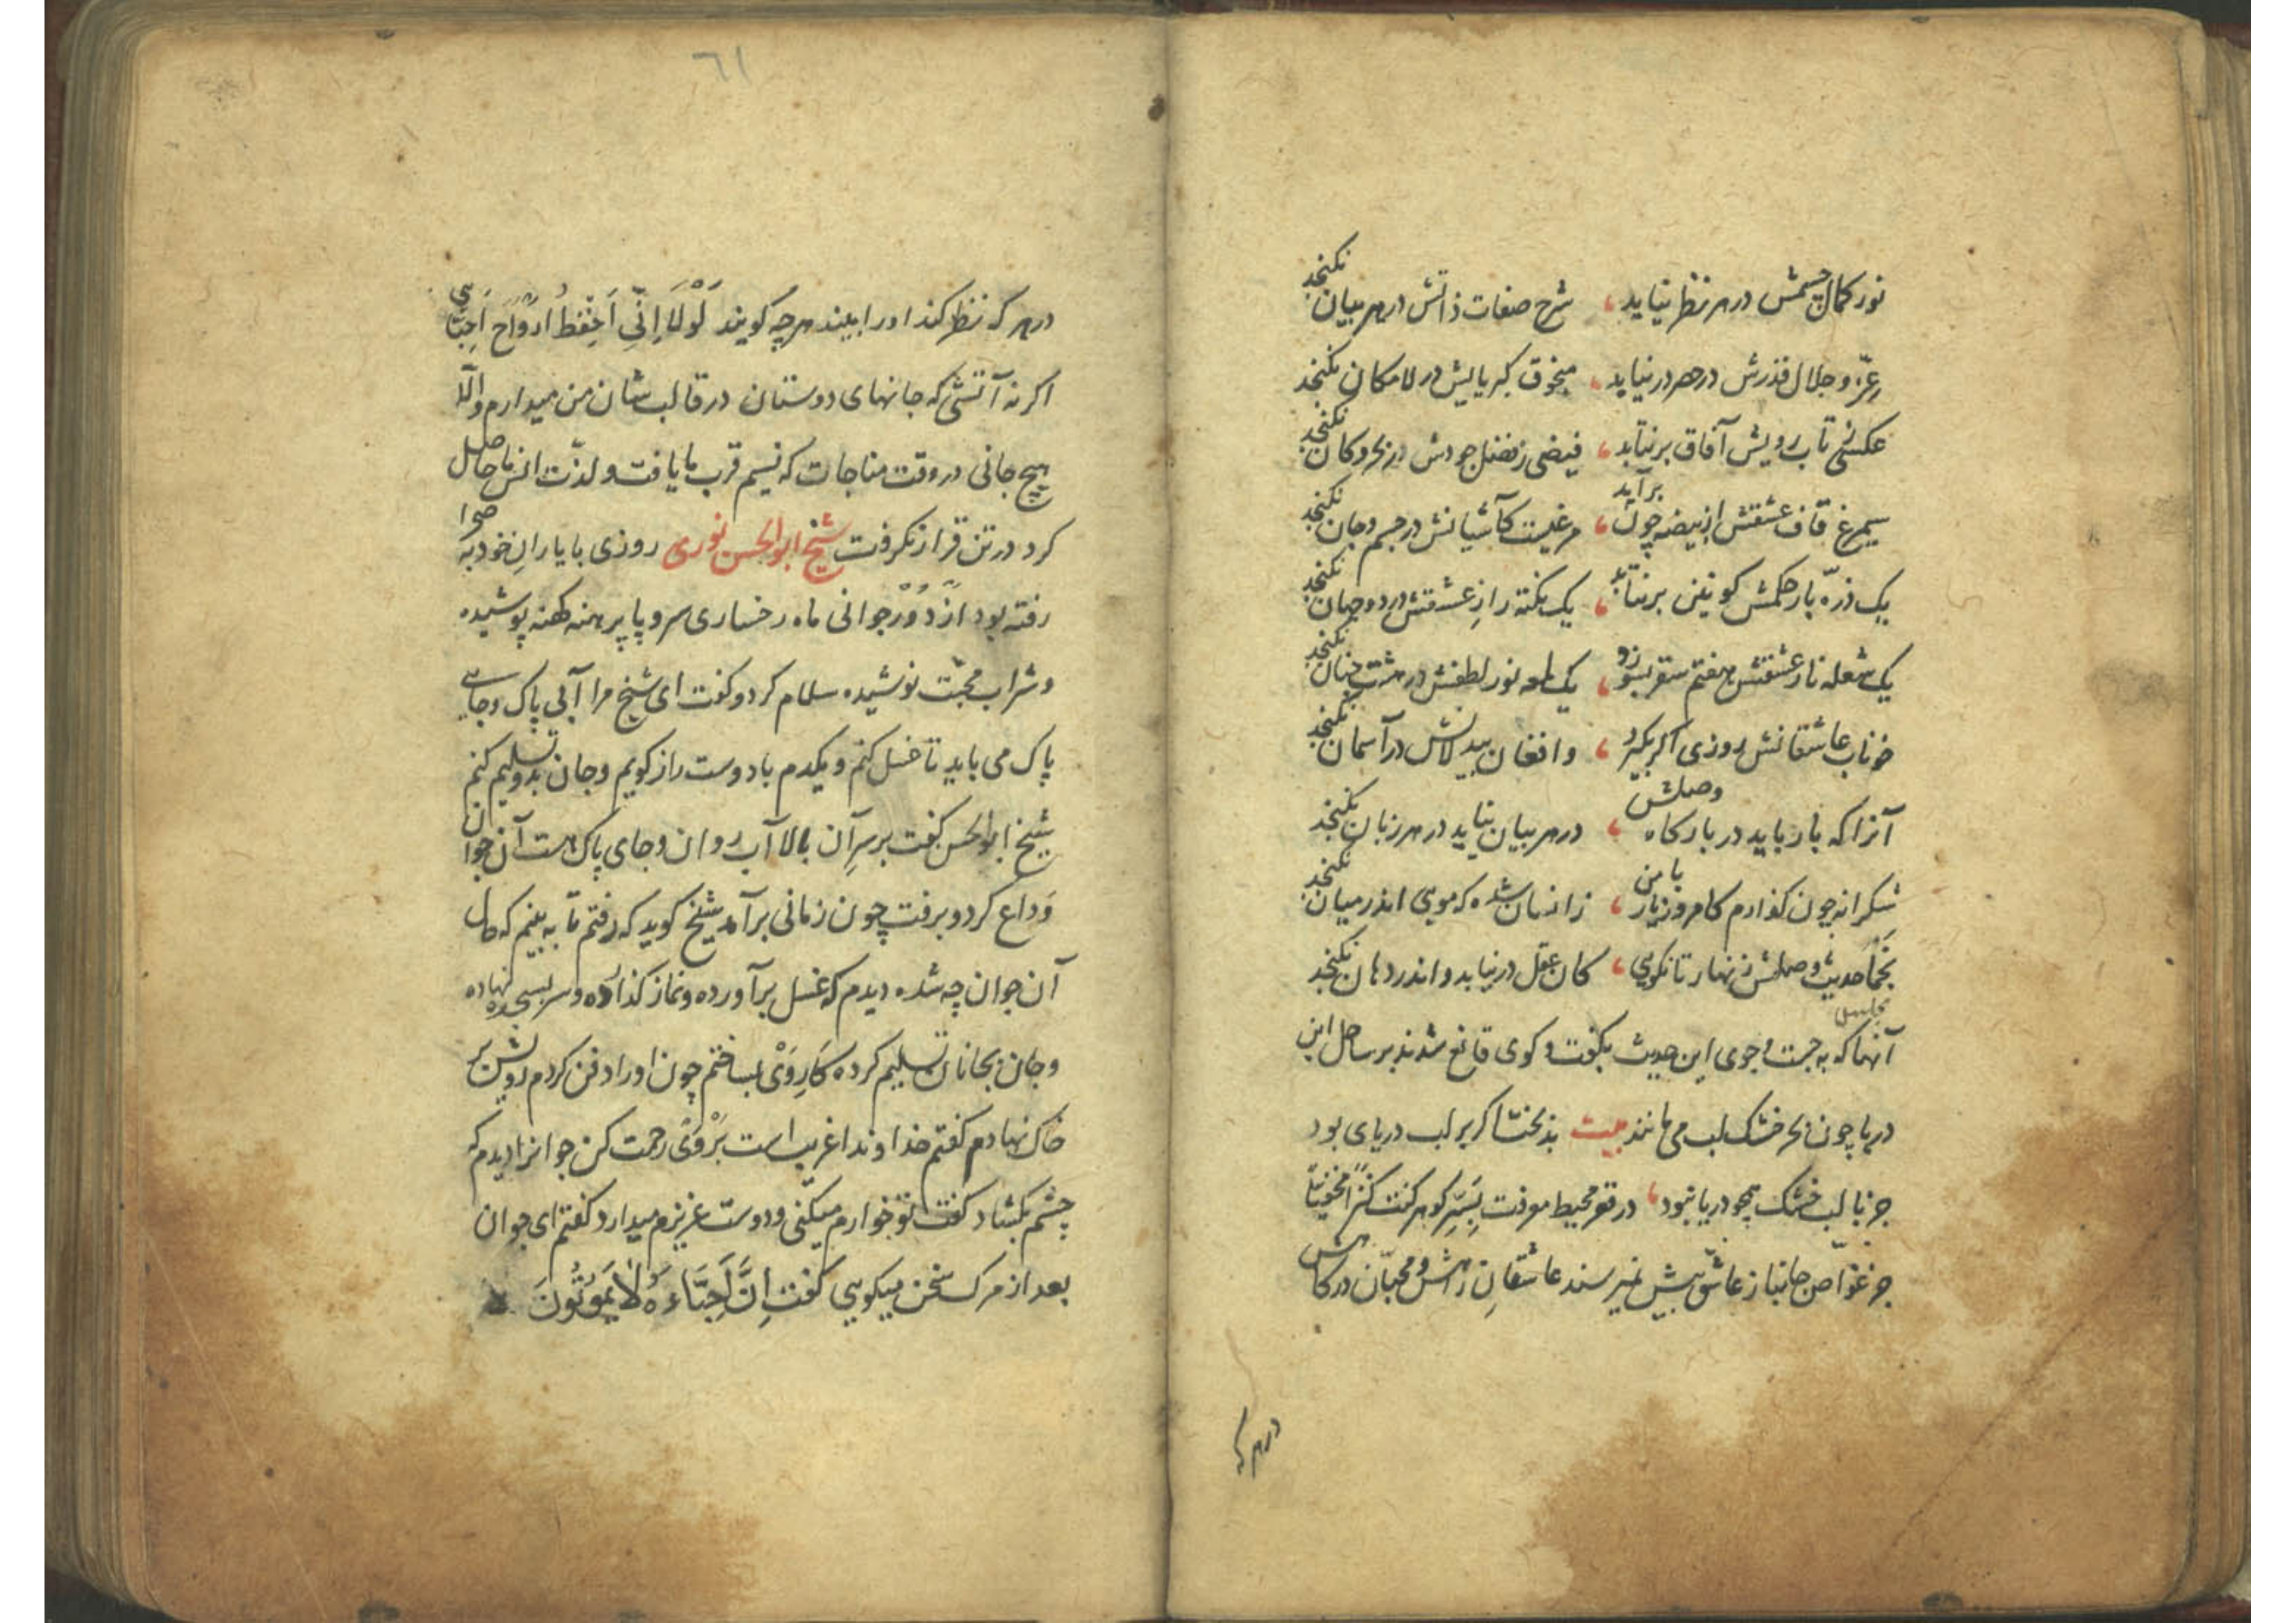 نور کمال چشمش در هر نظر نیاید ، شرح صفات ذاتش در هر بیان نکنجد
عزّ و جلال قدرش در هر در نیاید ، کبریایش در لامکان نکنجد
عکسی ز تاب رویش آفاق برنتابد ، فیضی ز فضل جودش در بحر و کان نکنجد
سیمرغ قاف عشقش از بیضه چون برآید ، مرغیست کآشیانش در جسم و جان نکنجد
یک ذرّه بار حکمش کونین برنتابد ، یک نکته رازِ عشقش در دو جهان نکنجد
یک شعله نار عشقش هفتم سقر بسوزد ، یک لمعه نور لطفش در هشت جنان نکنجد
خوناب عاشقانش روزی اکر بکیرد ، وافغان بیدلانش در آسمان نکنجد
آنرا که بار یابد در بارکاه وصلش ، در هر بیان نیاید در هر زبان نکنجد
شکرانه چون کذارم کامروز یار با من ، زانسان شده که مویی اندر میان نکنجد
نجما حدیث وصلش زنهار تا نکویی ، کان عقل در نیابد و اندر دهان نکنجد
آنها که به جست و جوی این حدیث بکفت و کوی قانع شدند بر ساحل این
دریا چون بحر خشک لب می مانند بیت بذبختا کر بر لب دریای بود
جز با لب خشک همچو دریا نبود ، در قعر محیط معرفت بِسَرِّ کوهر کنت کنزًا مخفیًّا
جز غوّاص جانباز عاشق بیش نمیرسند عاشقانِ زاتش و محبّان درکاهش
در هر که
٦١
در هر که نظر کند او را بیند هر چه کویند لَوْلَا اِنّی اَحْفَظُ ارْوَاحَ اَحِبَّائی
اکر نه آنستی که جانهای دوستان در قالب شان من میدارم و الّا
هیچ جانی در وقت مناجات که نسیم قرب ما یافت و لذّت انس ما حاصل
کرد در تن قرار نکرفت شیخ ابوالحسن نوری روزی با یارانِ خود به صحرا
رفته بود از دُوْر جوانی ماه رخساری سر و پا برهنه کهنه پوشیده
و شراب محبّت نوشیده سلام کرد و کفت ای شیخ مرا آبی پاک و جایی
پاک می باید تا غسل کنم و یکدم با دوست راز کویم و جان بدو تسلیم کنم
شیخ ابوالحسن کفت بر سرِ آن بالا آب روان و جای پاک است آن جوان
وَداع کرد و برفت چون زمانی برآمد شیخ کوید که رفتم تا به بینم که حال
آن جوان چه شد دیدم که غسل برآورده و نماز کذارده و سر بسجده نهاده
و جان بجانان تسلیم کرده کَارِ وَیْ بساختم چون او را دفن کردم رویش بر
خاک نهادم کفتم خداوندا غریب است بَرْ وَیْ رحمت کن جوانرا دیدم که
چشم بکشاد کفت تو خوارم میکنی و دوست عزیزم میدارد کفتم ای جوان
بعد از مرک سخن میکویی کفت اِنَّ اَحِبَّاءَهُ لَا یَمُوتُونَ